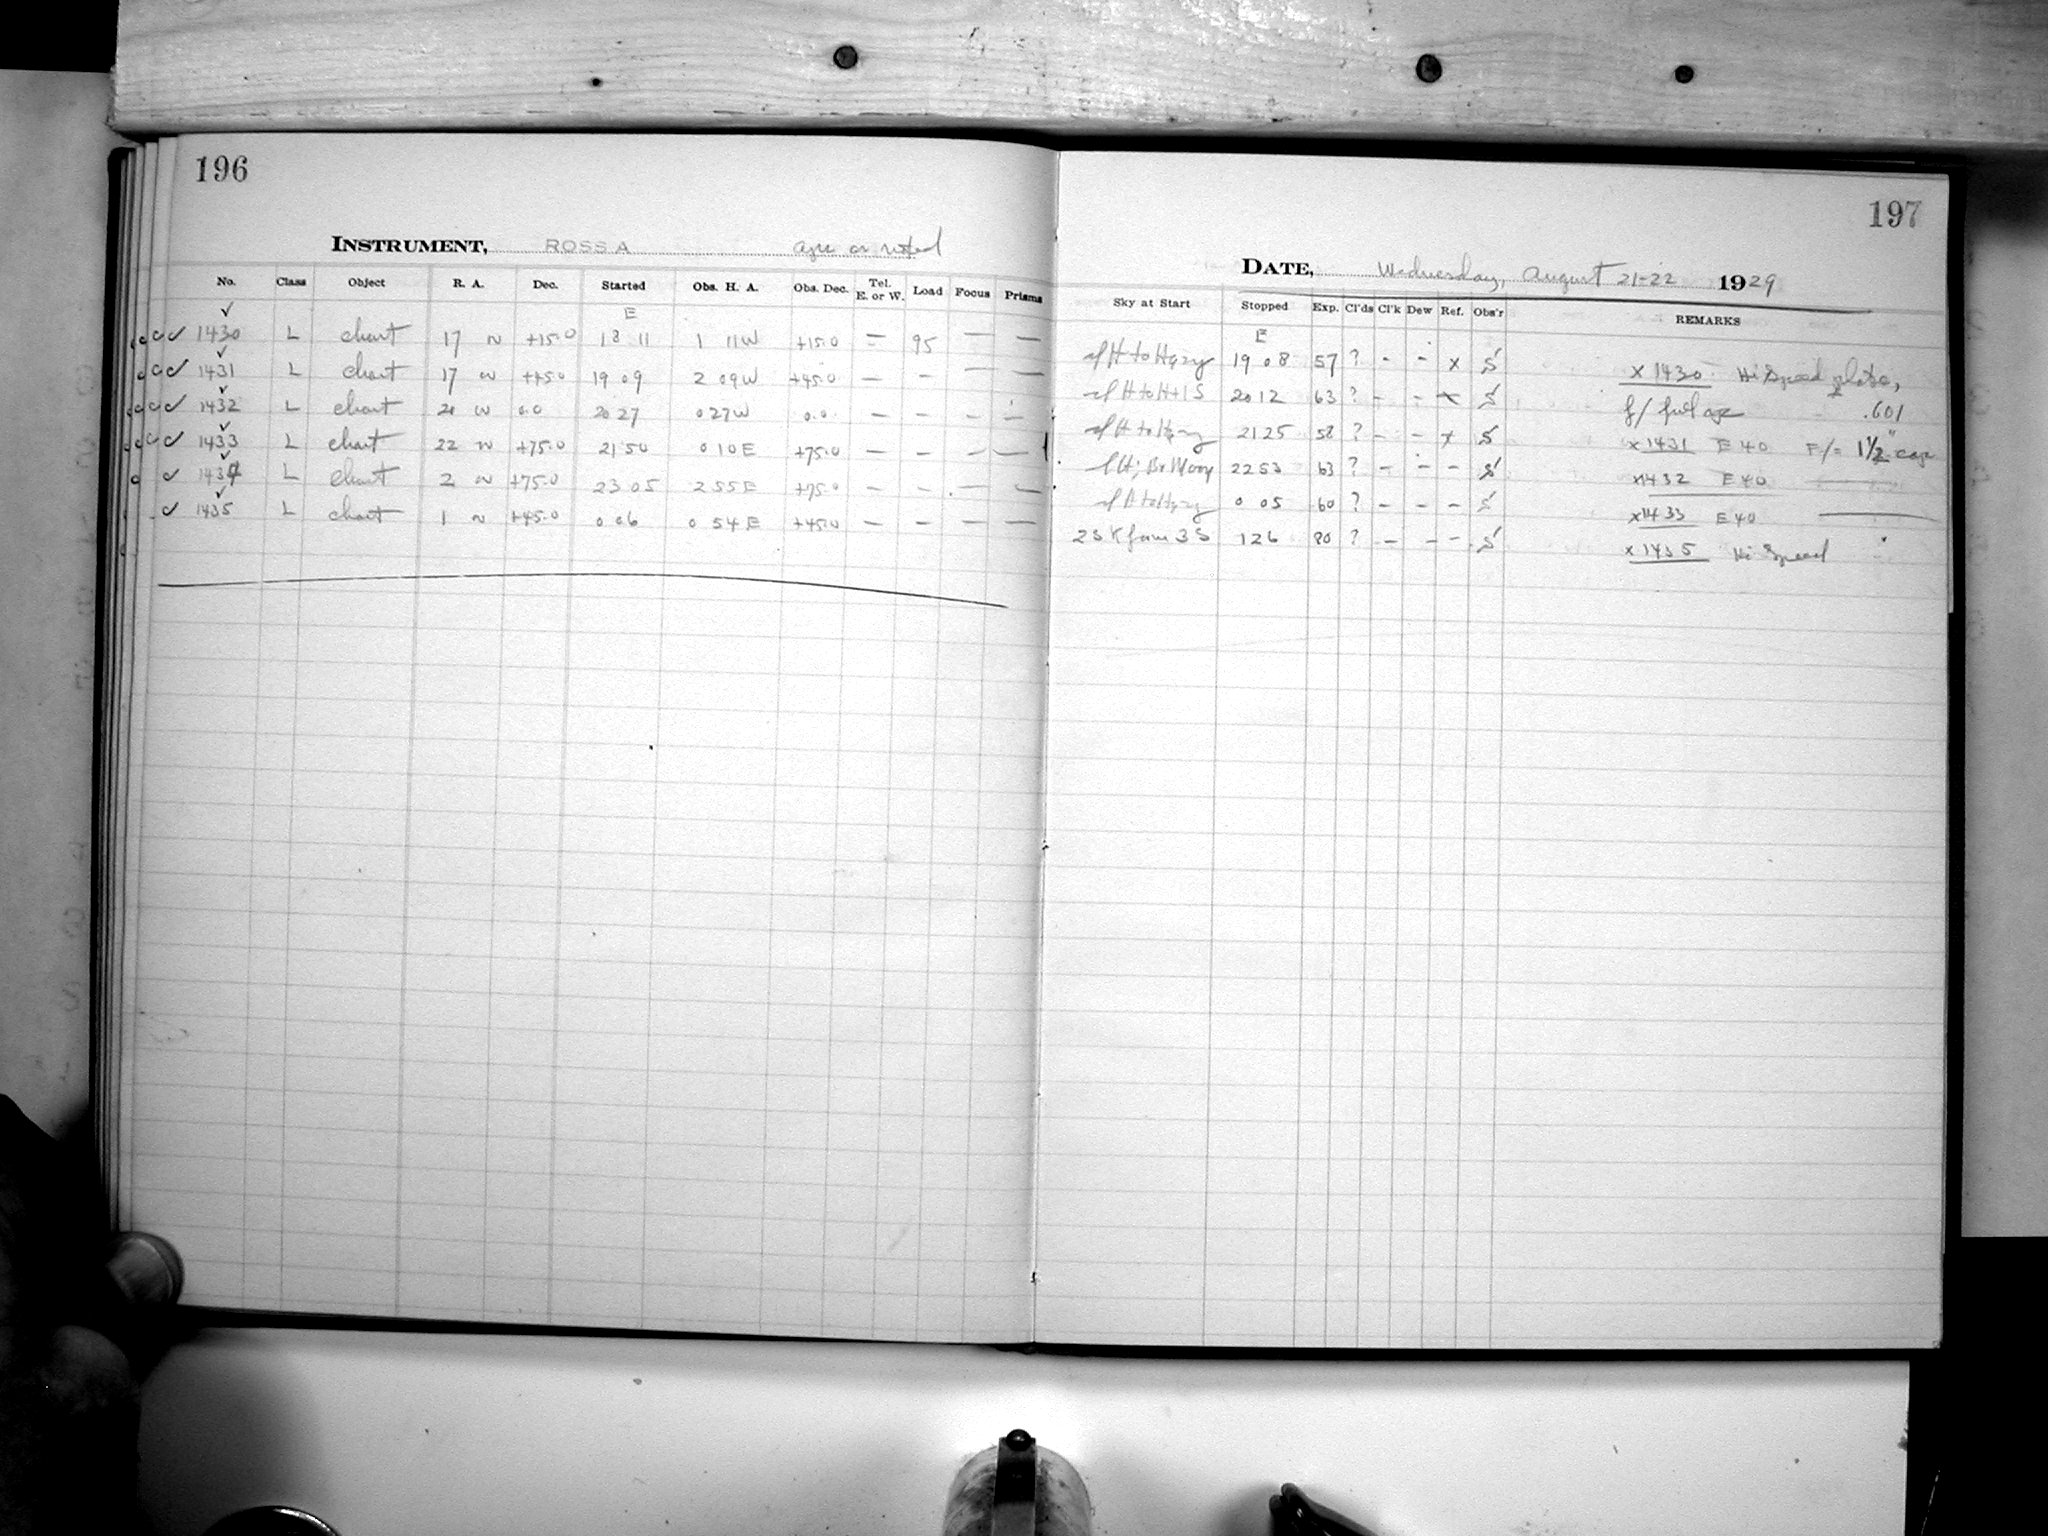 196
INSTRUMENT, ROSS A
No. Class Object R. A. Dec. Started Obs. H. A. Obs. Dec. Tel. E. or W. Load Focus Prisms
E
1430 L chart 17 n +15.0 18 11 1 11W +15.0 — 95 — —
1431 L chart 17 n +45.0 19 09 2 09W +45.0 — — — —
1432 L chart 20 n 0.0 20 27 0 27W 0.0 — — — —
1433 L chart 22 n +75.0 21 50 0 10E +75.0 — — — —
1434 L chart 2 n +75.0 23 05 2 55E +75.0 — — — —
1435 L chart 1 n +45.0 0 06 0 54E +45.0 — — — —
197
DATE, Wednesday, August 21-22 1929
Sky at Start Stopped Exp. Cl'ds Cl'k Dew Ref. Obs'r REMARKS
E
19 08 57 ? - - x S x 1430 Hi Speed plate,
20 12 63 ? - - x S f/ full ap .601
21 25 58 ? - - x S x 1431 E 40 F/= 1½" cap
22 53 63 ? - - - S x1432 E 40
0 05 60 ? - - - S x1433 E 40
1 26 80 ? - - - S x 1435 Hi Speed